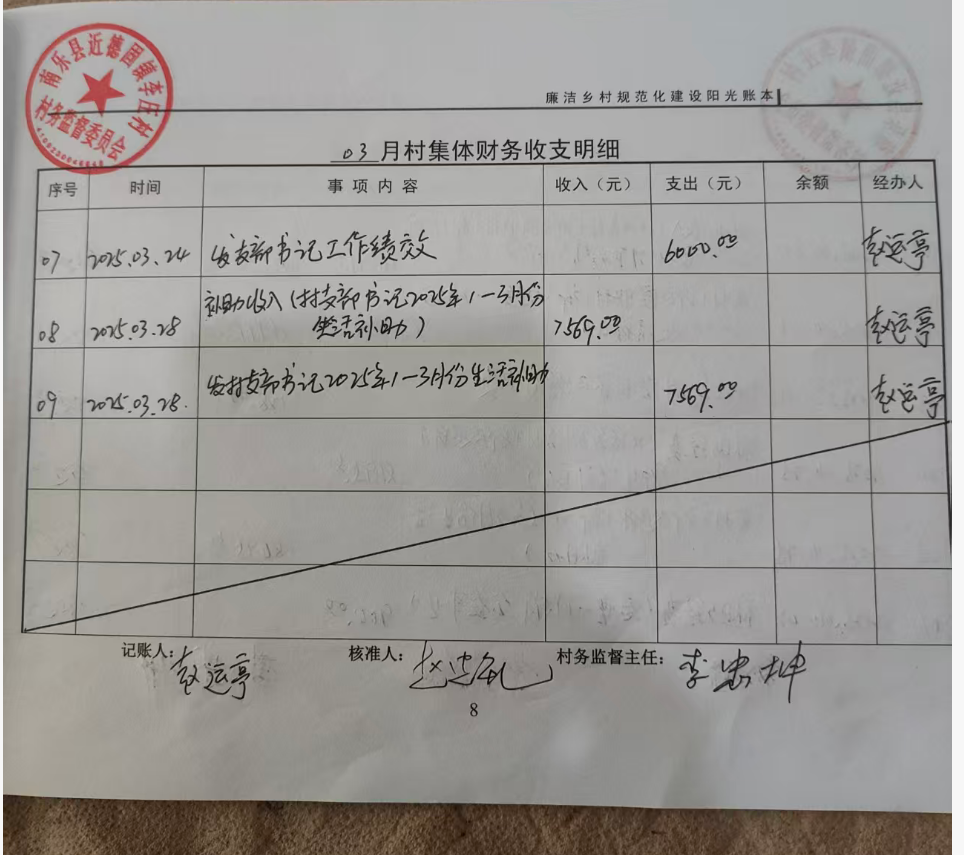 南乐县近德固镇李庄村
村务监督委员会
廉洁乡村规范化建设阳光账本
03月村集体财务收支明细
序号 时间 事项内容 收入（元） 支出（元） 余额 经办人
07 2025.03.24 发支部书记工作绩效 6000.00 赵运亭
补助收入（村支部书记2025年1—3月份
08 2025.03.28 生活补助） 7569.00 赵运亭
09 2025.03.28. 发村支部书记2025年1—3月份生活补助 7569.00 赵运亭
记账人：赵运亭 核准人： 村务监督主任：李忠坤
8